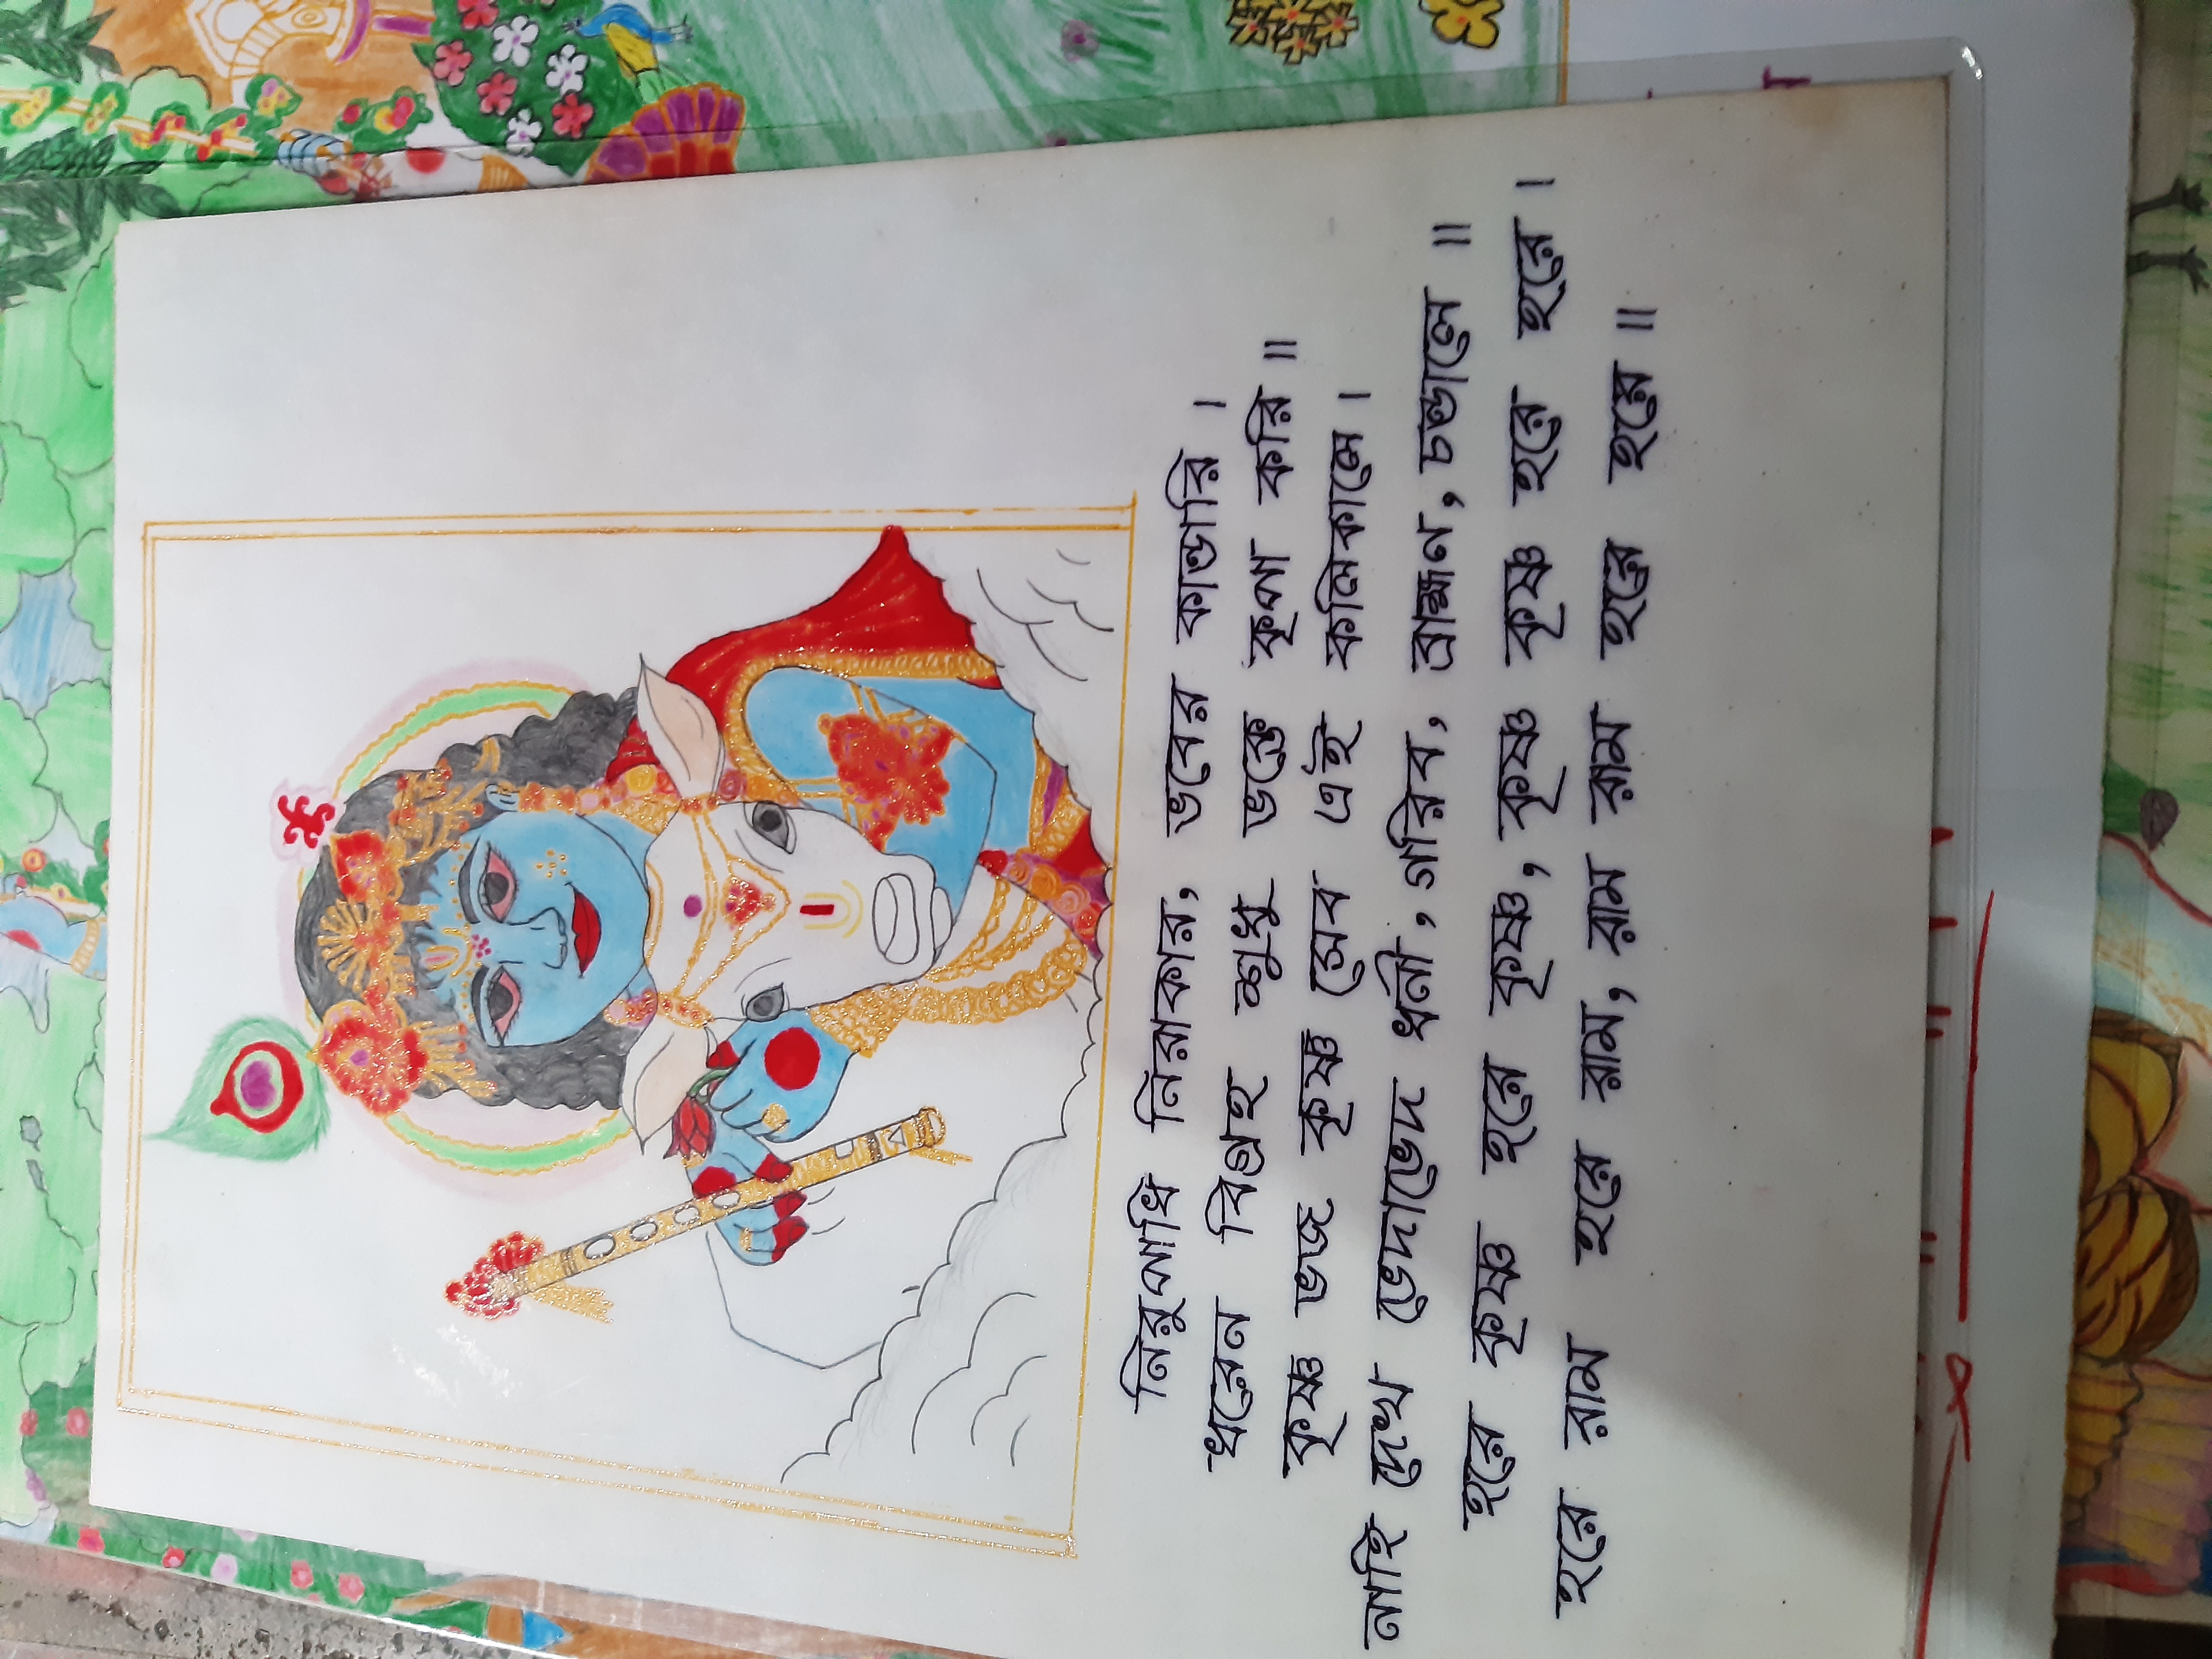 নিরুপাধি নিরাকার, ভবের কান্ডারি ।
ধরেন বিগ্রহ শুধু ভক্তে কৃপা করি ॥
কৃষ্ণ ভজ কৃষ্ণ সেব এই কলিকালে ।
নাহি দেখ ভেদাভেদ ধনী, গরিব, ব্রাহ্মণ, চন্ডালে ॥
হরে কৃষ্ণ হরে কৃষ্ণ, কৃষ্ণ কৃষ্ণ হরে হরে ।
হরে রাম হরে রাম, রাম রাম হরে হরে ॥